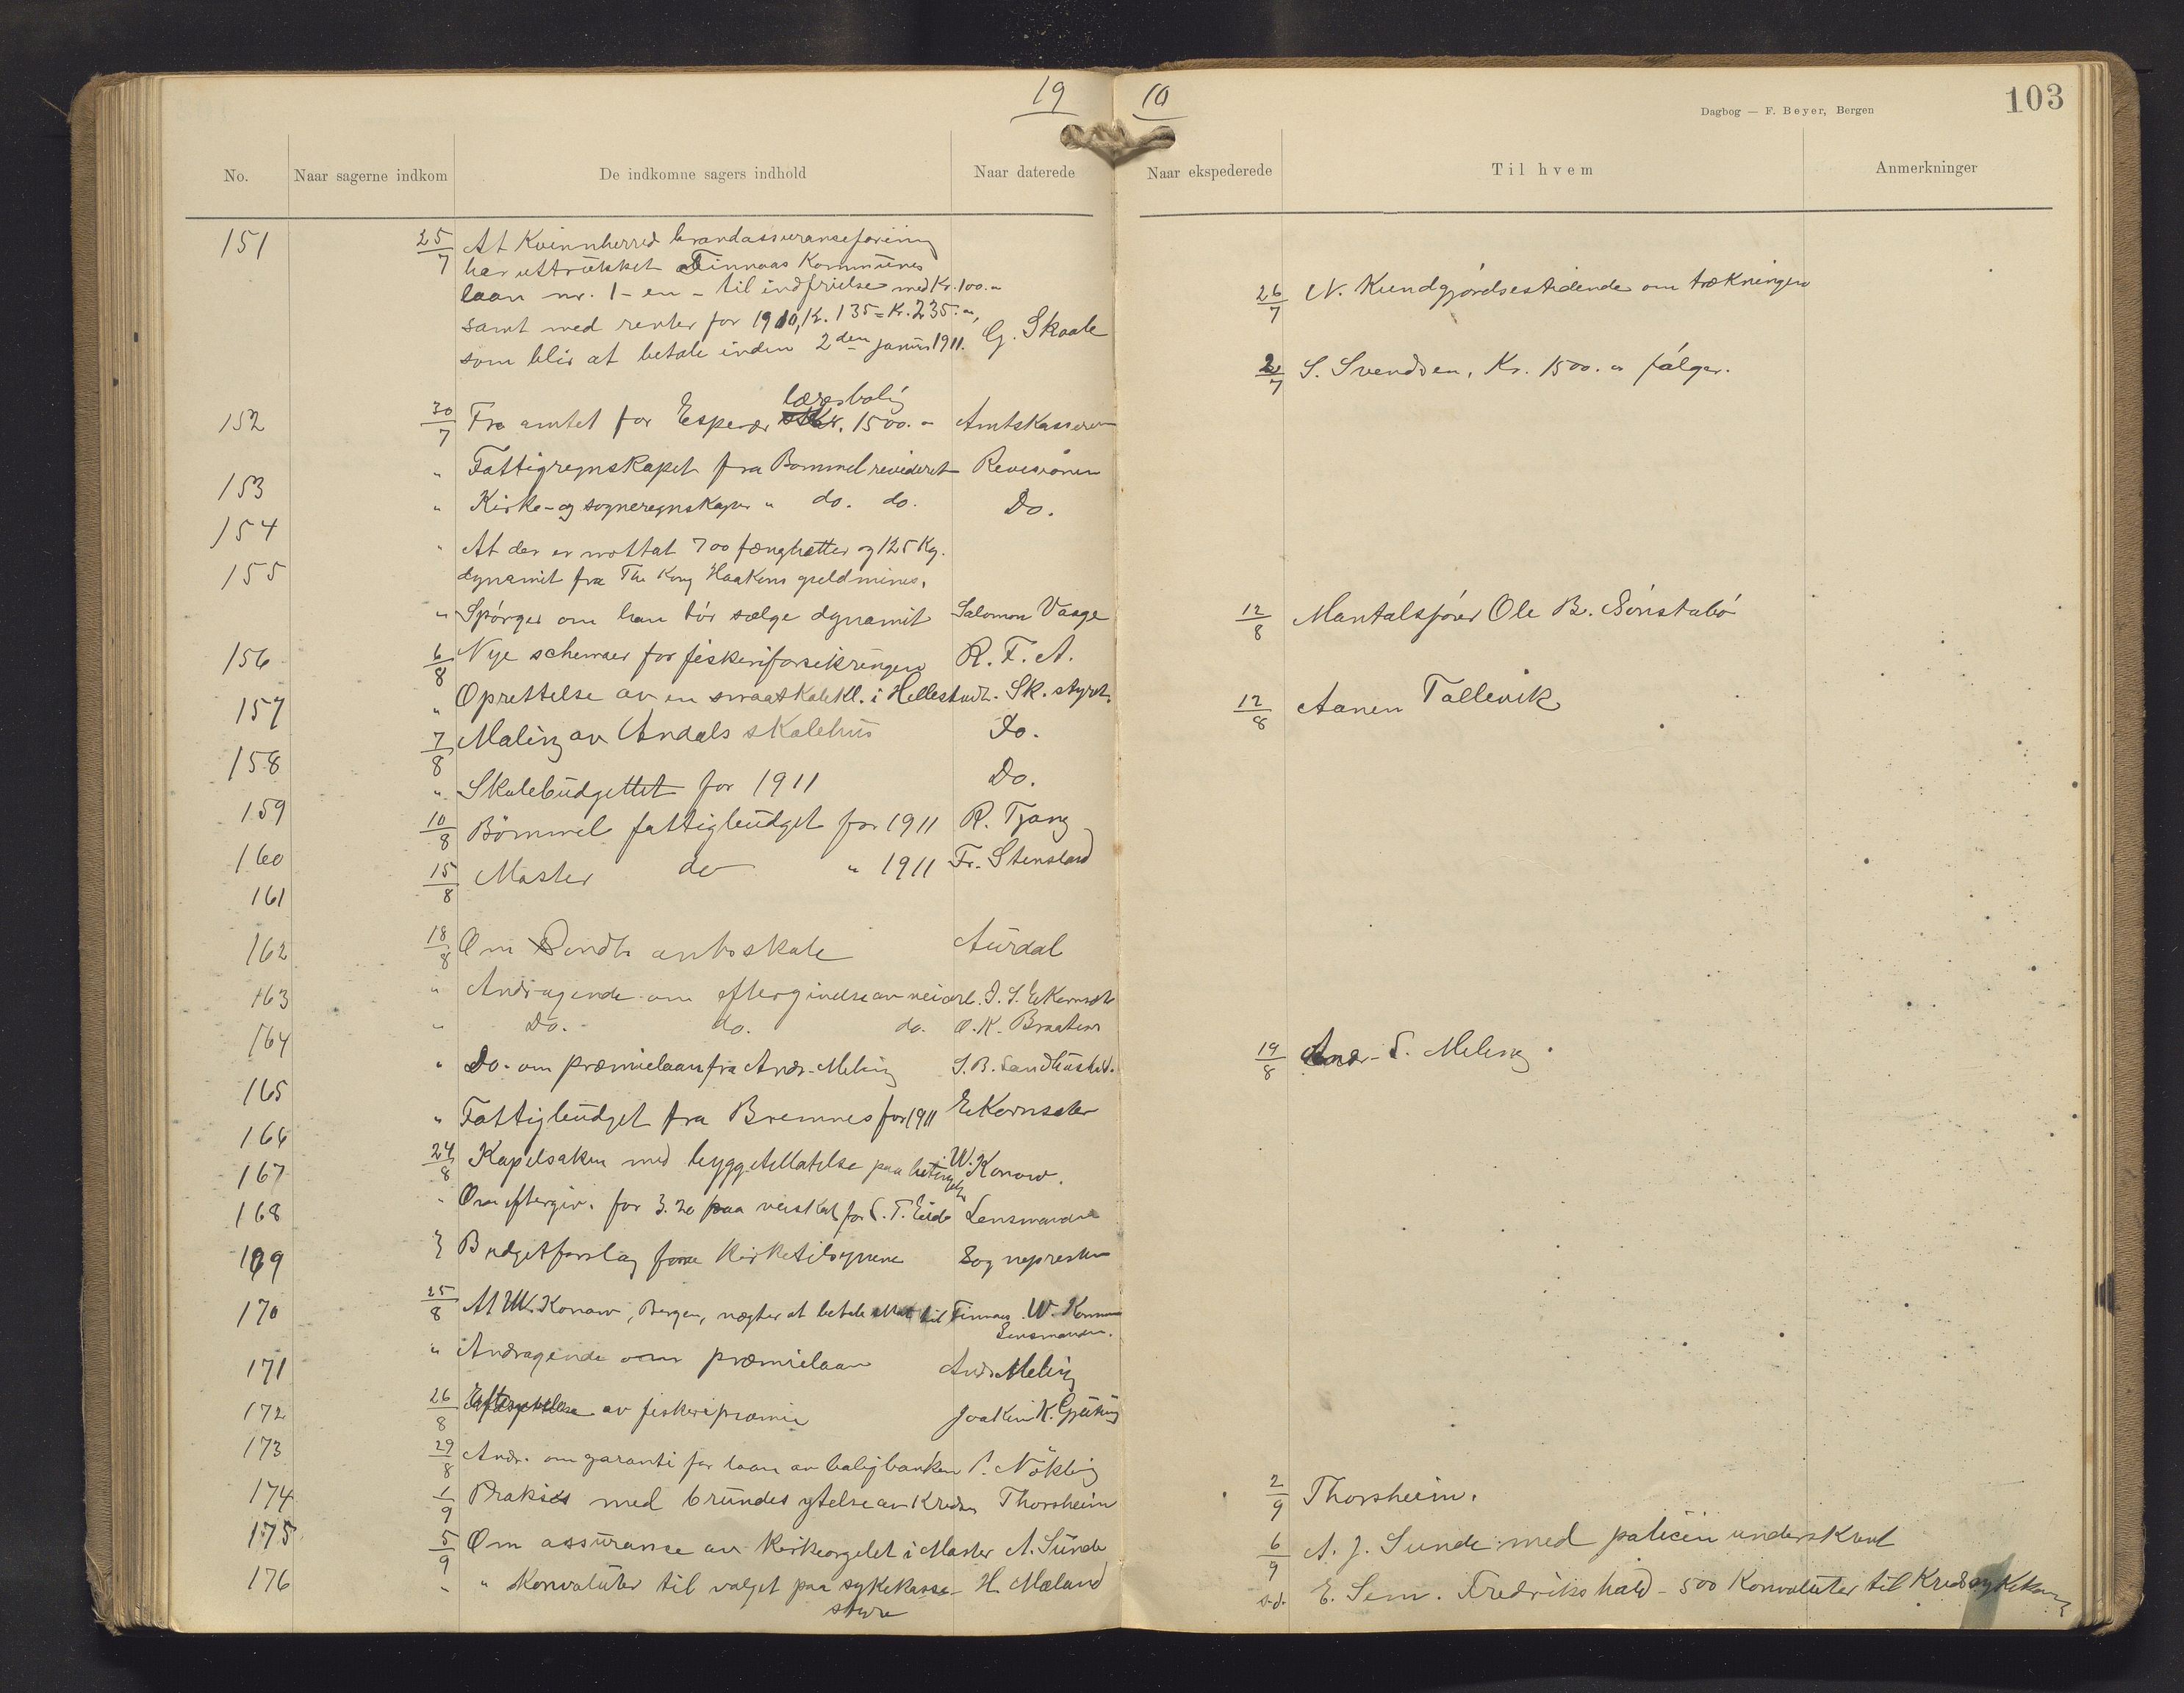 19 10
103
Dagbog — F. Beyer, Bergen
No. Naar sagerne indkom De indkomne sagers indhold Naar daterede Naar ekspederede Til hvem Anmerkninger
151 25/7 At Kvinnherred brandassuranseforening
har uttrukket Finnaas Kommunes
laan nr. 1 - en - til indfrielse med Kr. 100.-
26/7 N. Kundgjørelsestidende om trækningen
samt med renter for 1910, Kr. 135 = Kr. 235.-,
som blir at betale inden 2den januar 1911. G. Skaale
2/7 S. Svendsen, Kr. 1500.- følger.
lærerbolig
152 30/7 Fra amtet for Espevær Kr. 1500.- Amtskasseren
153 " Fattigregnskapet fra Bømmel revideret Revisionen
154 " Kirke- og sogneregnskaper " do. do. Do.
155 " At der er mottat 700 fænghætter og 125 Kg.
dynamit fra The Kong Haakons guldmines.
" Spørger om han tør sælge dynamit Salomon Vaage 12/8 Mantalsfører Ole B. Sønstabø
156 6/8 Nye schemaer for fiskeriforsikringen R. F. A.
157 " Oprettelse av en smaaskolekl. i Hellesund. Sk. styret. 12/8 Aanen Tollevik
158 7/8 Maling av Andals skolehus Do.
159 " Skolebudgettet for 1911 Do.
160 10/8 Bømmel fattigbudget for 1911 R. Tjong
161 15/8 Moster do " 1911 Fr. Stensland
162 18/8 Om amtsskole Aurdal
163 " Andragende om eftergivelse av veiarb. J. S. Ekornsæter
164 " Do. do. do. O. K. Braaten
165 " Do. om præmielaan fra Andr. Meling S. B. 19/8 Andr. S. Meling.
166 " Fattigbudget fra Bremnes for 1911 Ekornsæter
167 24/8 Kapelsaken med byggetillatelse paa betingelse W. Konow.
168 " Om eftergiv. for 3.20 paa veiskat for S. T. Eide Lensmanden
169 Budgetforslag fra Kirketilsynene Sognepresten
170 25/8 At W. Konow, Bergen, nægter at betale skat til Finnaas W. Konow
Lensmanden.
171 " Andragende om præmielaan Andr. Meling
172 26/8 Eftergivelse av fiskeripræmie Joakim K.
173 29/8 Andr. om garanti for laan av boligbanken Nøkling
174 1/9 Praksis med grundes ytelse av Kredsen Thorsheim 2/9 Thorsheim.
175 5/9 Om assuranse av Kirkeorgelet i Moster A. Sunde 6/9 A. J. Sunde med policen underskrevet
176 " " Konvoluter til valget paa sykekasse- H. Mæland s.d. E. Sem. Fredrikshald - 500 Konvoluter til Kredssykekassen
styre